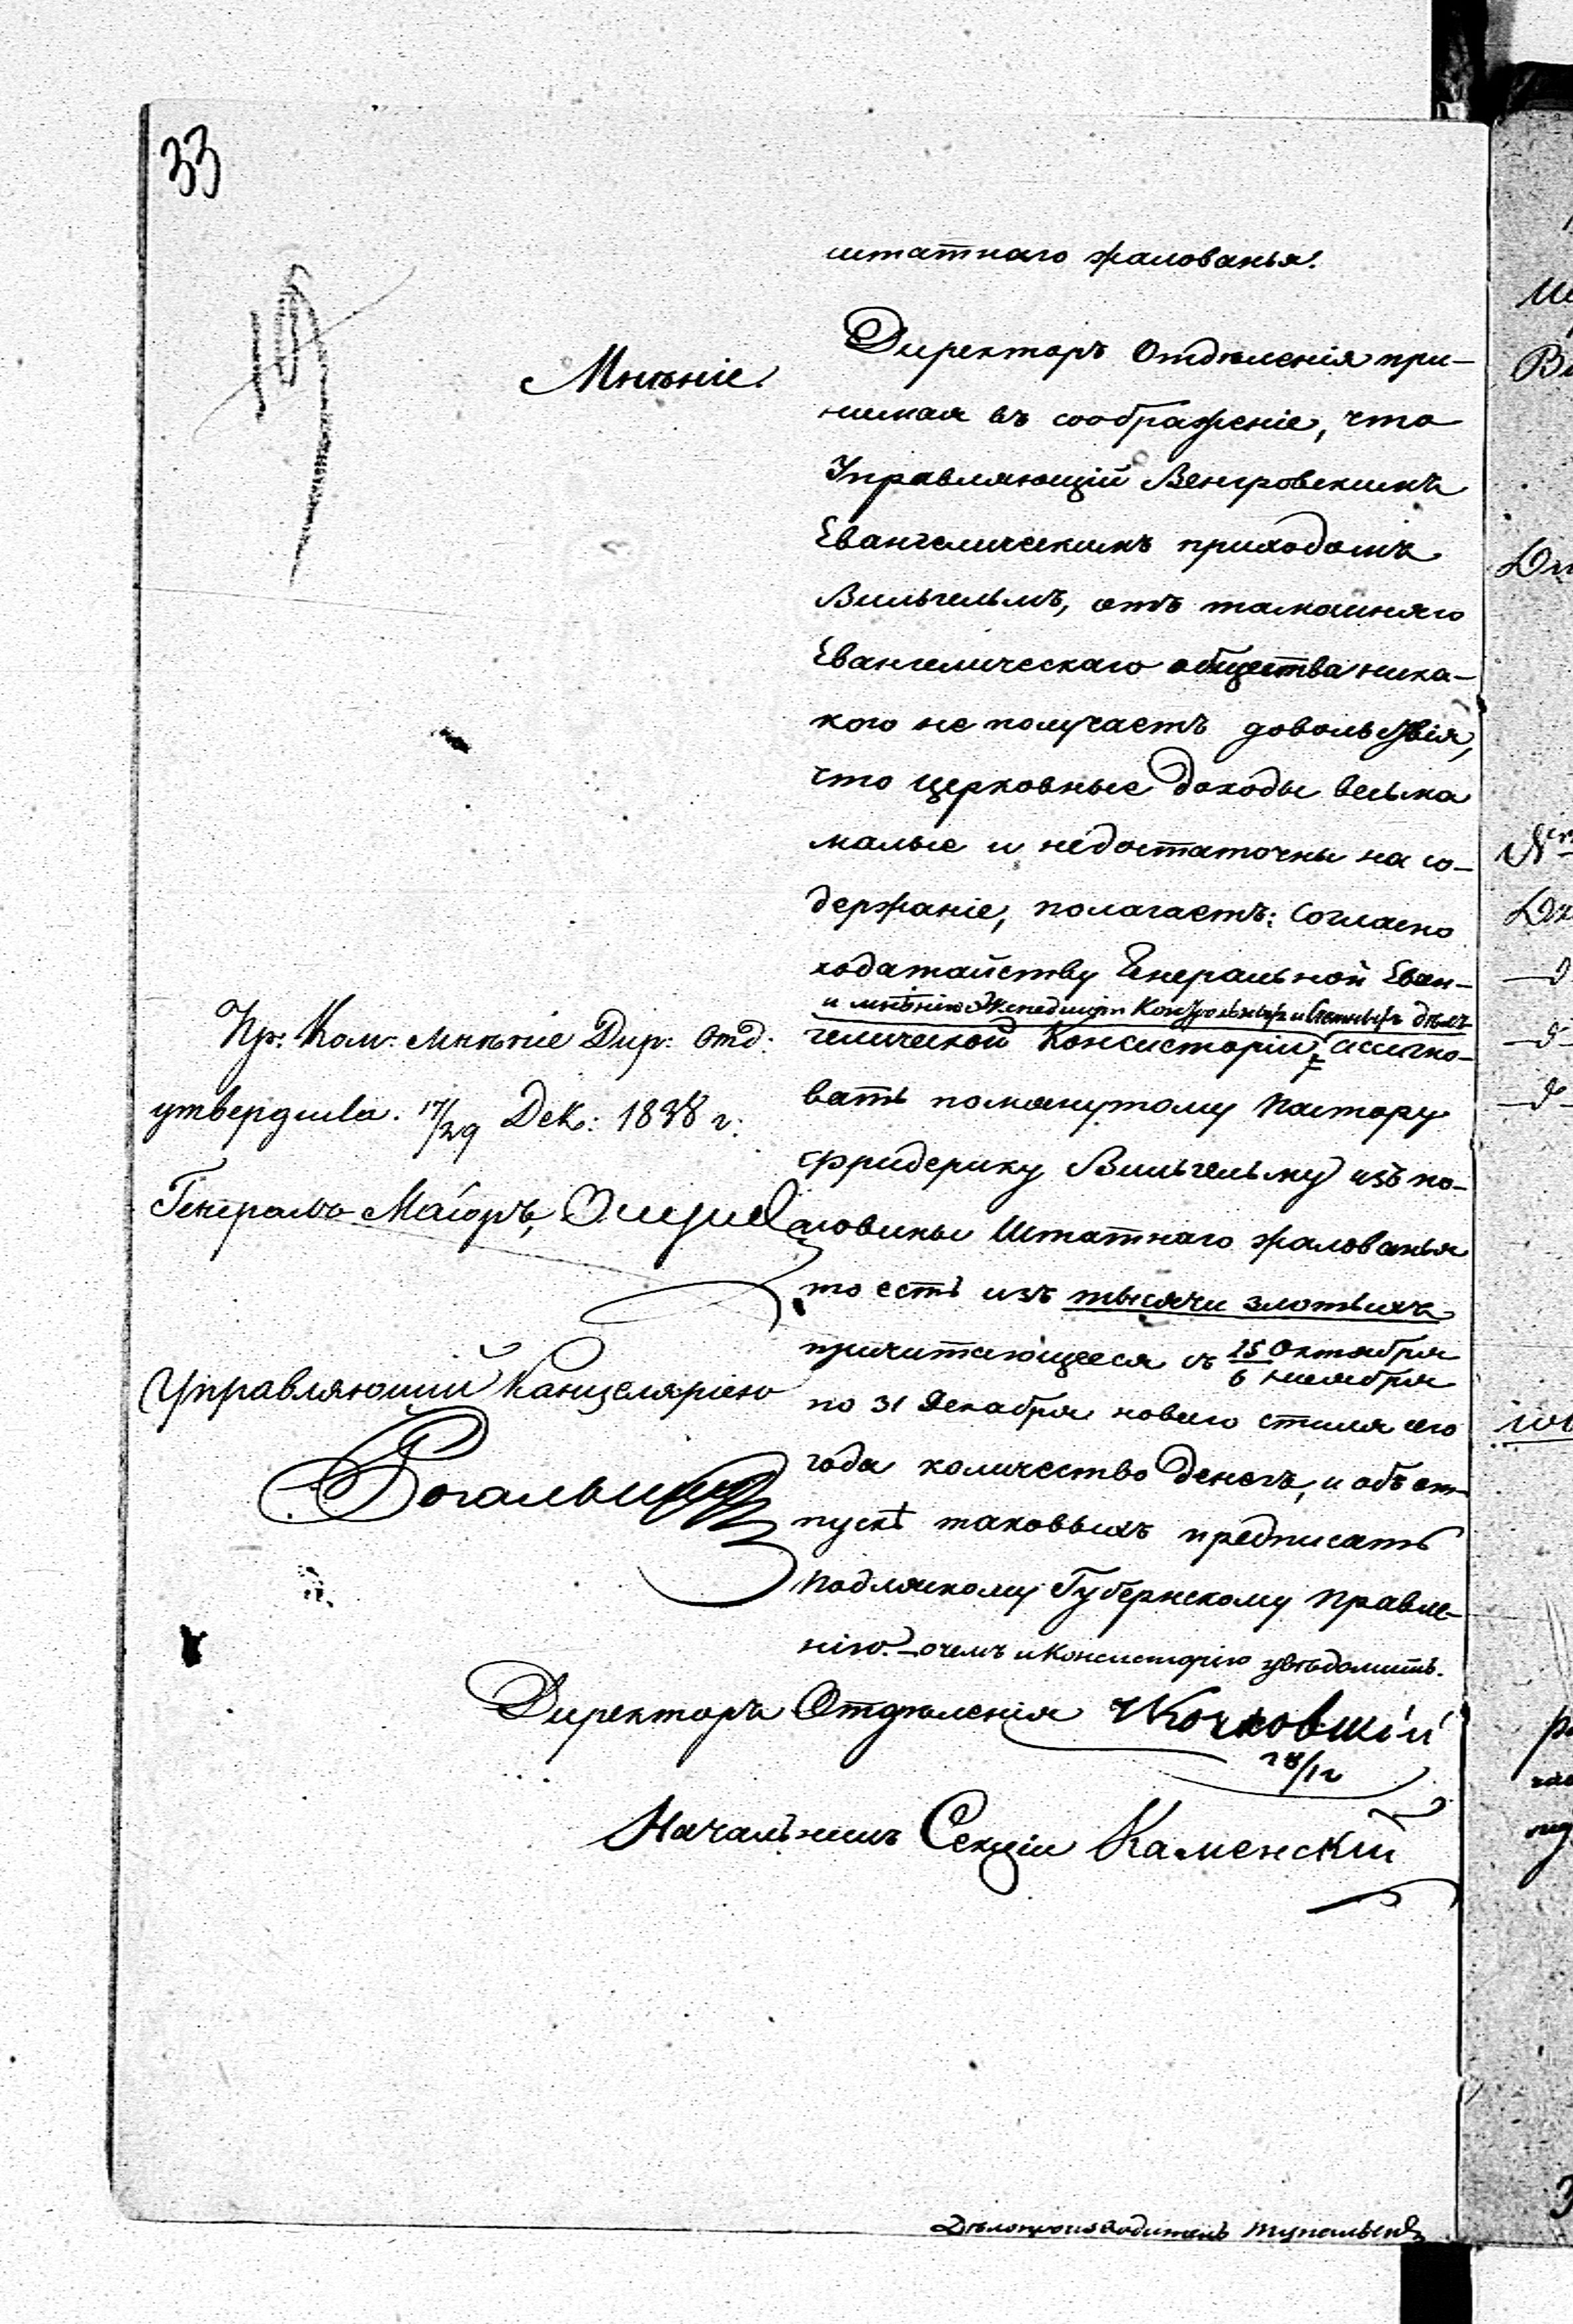 33
штатнаго жалованья.
Мнѣніе.
Директоръ Отдѣленія при-
нимая въ соображеніе, что
Управляющій Венгровскимъ
Евангелическимъ приходомъ
Вильгельмъ, отъ тамошняго
Евангелическаго общества ника-
кого не получаетъ довольствія,
что церковные доходы весьма
малые и недостаточны на со-
держаніе, полагаетъ: согласно
ходатайству Генеральной Еван-
и мнѣнію Экспедиціи Контрольныхъ и Счетныхъ дѣлъ
гелической Консисторіи, ассигно-
вать помянутому Пастору
Фридерику Вильгельму изъ по-
ловины Штатнаго жалованья
то есть изъ тысячи злотыхъ
причитающееся съ 25 Октября
6 Ноября
по 31 Декабря новаго стиля сего
года количество денегъ, и объ от-
пускѣ таковыхъ предписать
Подляскому Губернскому Правле-
нію. – о чемъ и Консисторію увѣдомить.
Пр: Ком: мнѣніе Дир: Отд:
утвердила. 17/29 Дек: 1838 г:
Генералъ Маіоръ,
Управляющий Канцеляріею
Директоръ Отдѣленія
Начальникъ Секціи Каменскій
Дѣлопроизводитель